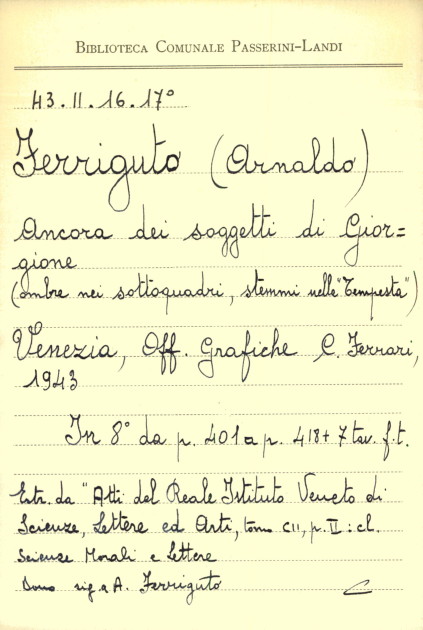 BIBLIOTECA COMUNALE PASSERINI-LANDI
43.II.16.17°
Ferriguto (Arnaldo)
Ancora dei soggetti di Gior=
gione
(ombre nei sottoquadri, stemmi nella "Tempesta")
Venezia, Off. Grafiche C. Ferrari,
1943
In 8° da p. 401 a p. 418 + 7 tav. f.t.
Estr. da "Atti del Reale Istituto Veneto di
Scienze, Lettere ed Arti, tomo CII, p. II: cl.
Scienze Morali e Lettere
Dono sig.a A. Ferriguto
C